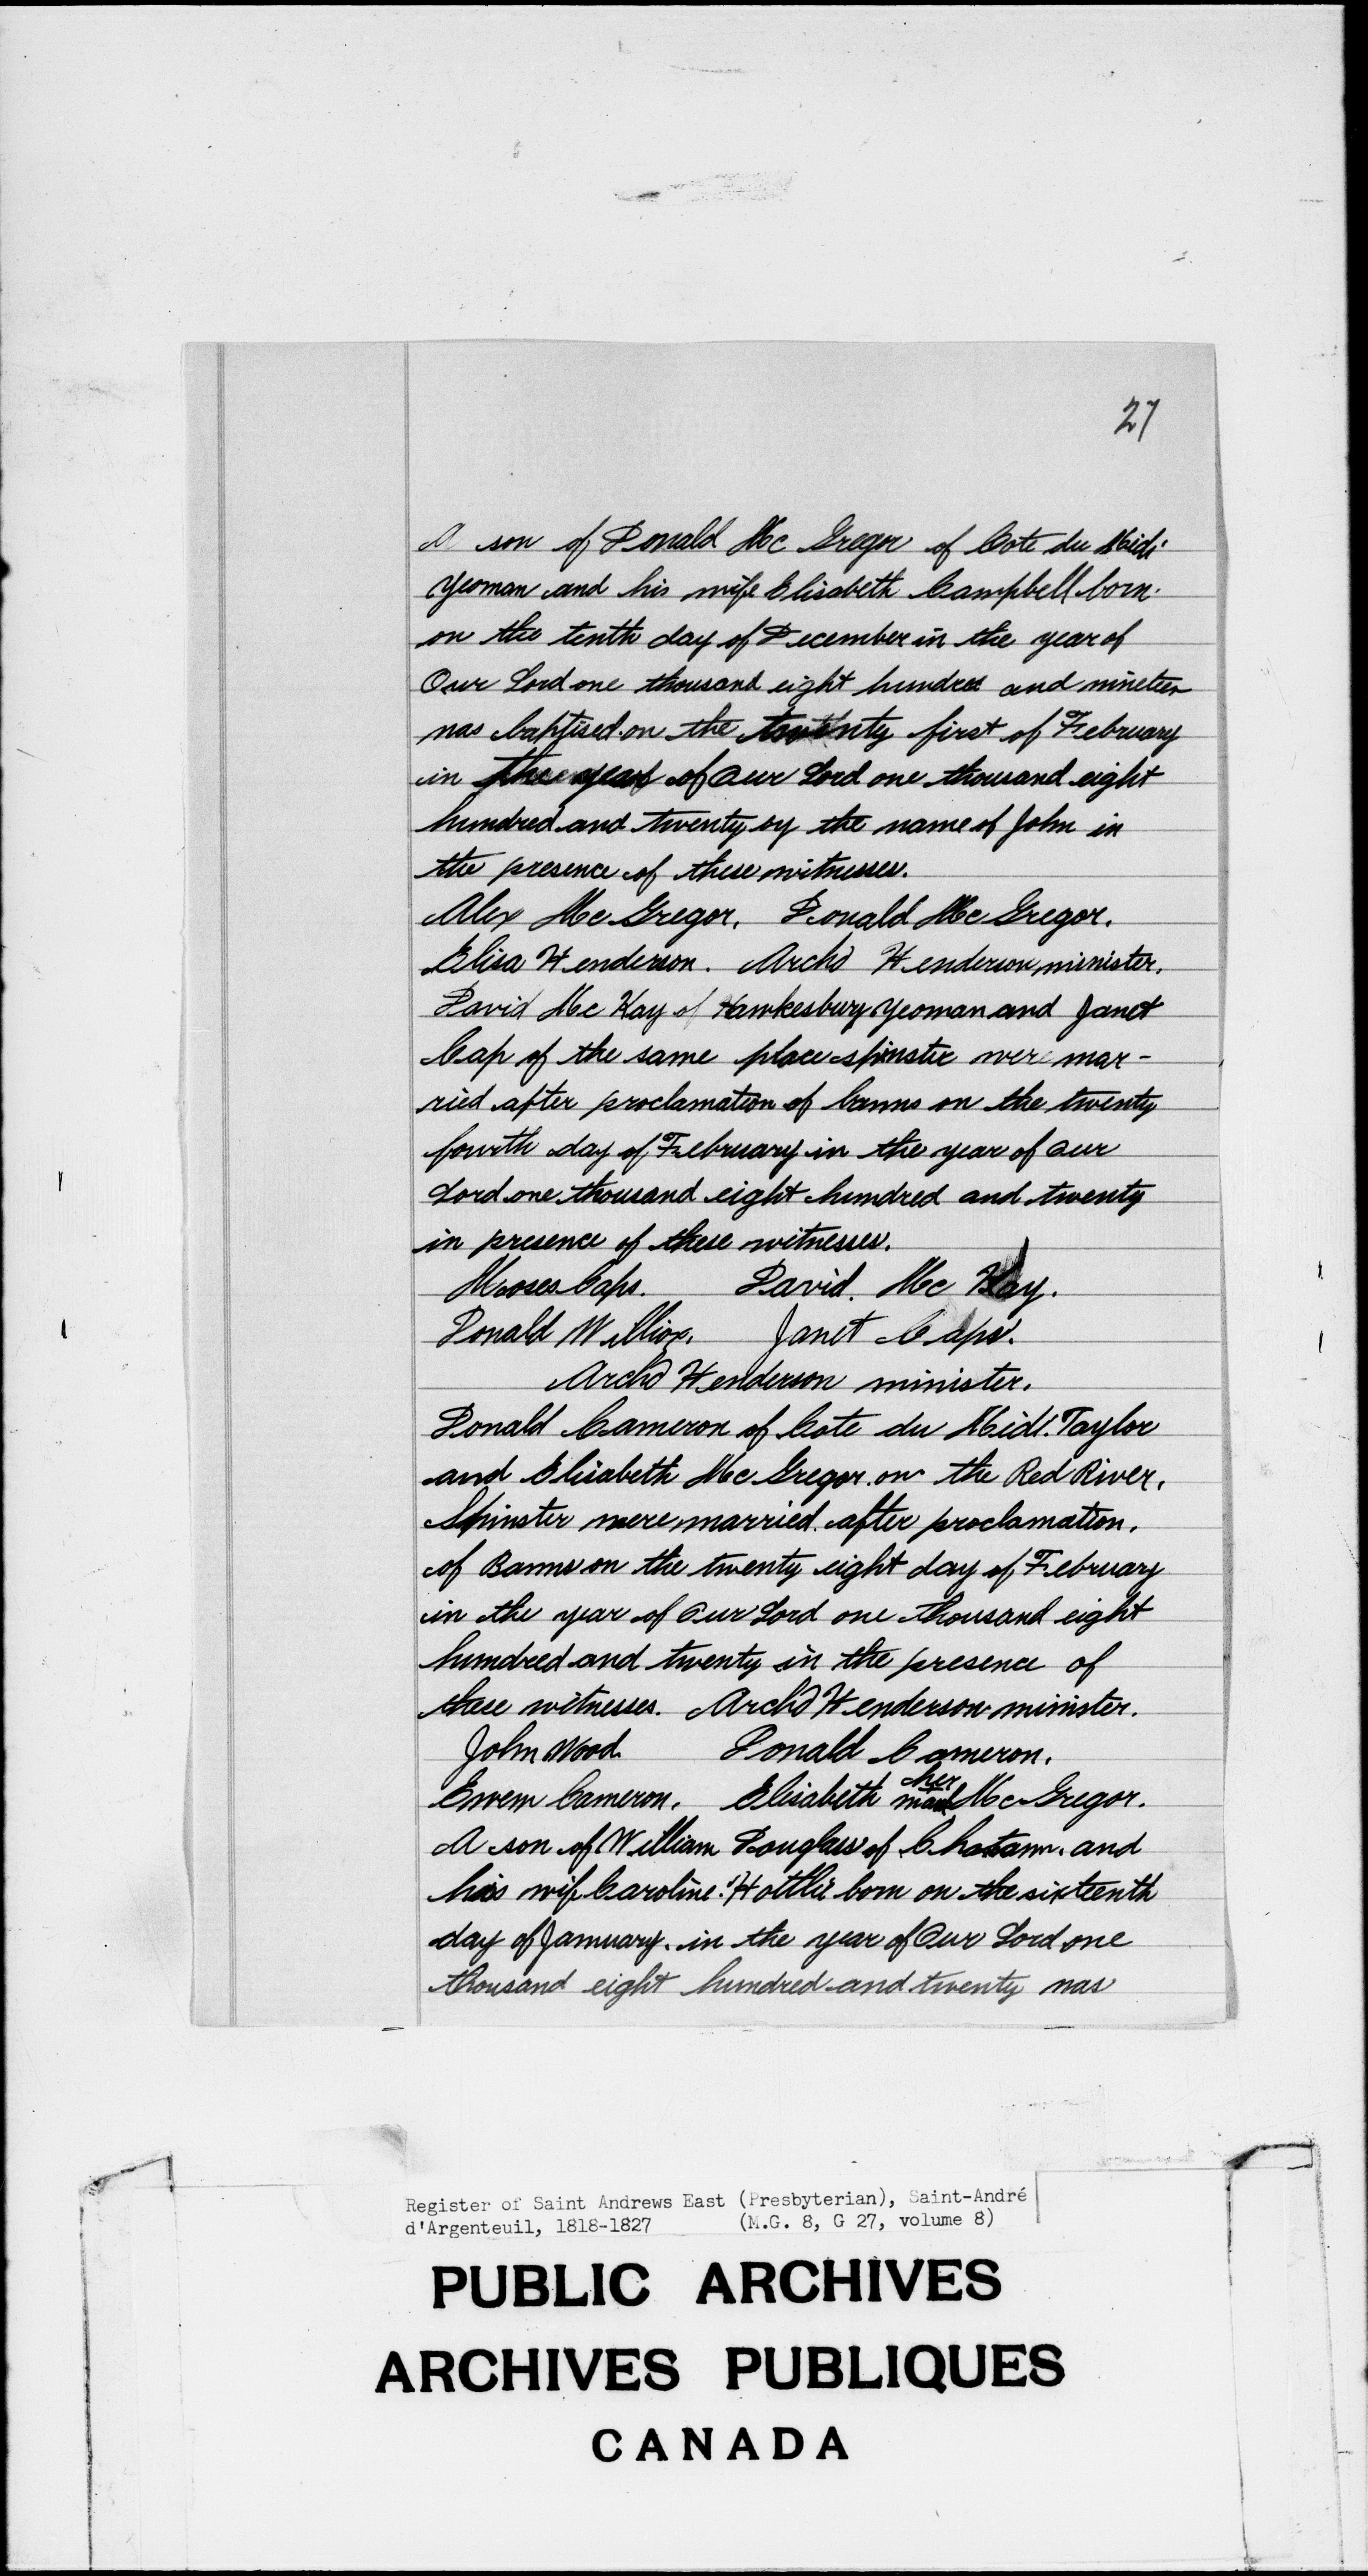 27
A son of Donald Mc Gregor of Cote du Midi
yeoman and his wife Elisabeth Campbell born
on the tenth day of December in the year of
Our Lord one thousand eight hundred and nineteen
was baptised on the twenty first of February
in the year of our Lord one thousand eight
hundred and twenty by the name of John in
the presence of these witnesses.
Alex Mc Gregor. Donald Mc Gregor.
Elisa Henderson. Archd Henderson minister.
David Mc Kay of Hawkesbury yeoman and Janet
Cap of the same place spinster were mar-
ried after proclamation of banns on the twenty
fourth day of February in the year of our
Lord one thousand eight hundred and twenty
in presence of these witnesses.
Moses Caps. David. Mc Kay.
Donald Janet Caps.
Archd Henderson minister.
Donald Cameron of Cote du Midi. Taylor
and Elisabeth Mc Gregor on the Red River.
Spinster were married after proclamation.
of Banns on the twenty eight day of February
in the year of Our Lord one thousand eight
hundred and twenty in the presence of
these witnesses. Archd Henderson minister.
John Wood. Donald Cameron.
Ewen Cameron. Elisabeth her mark Mc Gregor.
A son of William Douglass of Chatam. and
his wife Caroline born on the sixteenth
day of January. in the year of Our Lord one
thousand eight hundred and twenty was
Register of Saint Andrews East (Presbyterian), Saint-André
d'Argenteuil, 1818-1827 (M.G. 8, G 27, volume 8)
PUBLIC ARCHIVES
ARCHIVES PUBLIQUES
CANADA